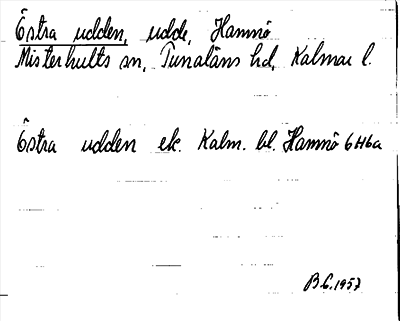 Östra udden, udde, Hamnö
Misterhults sn, Tunaläns hd, Kalmar l.
Östra udden ek. Kalm. bl. Hamnö 6H6a
B.C. 1957